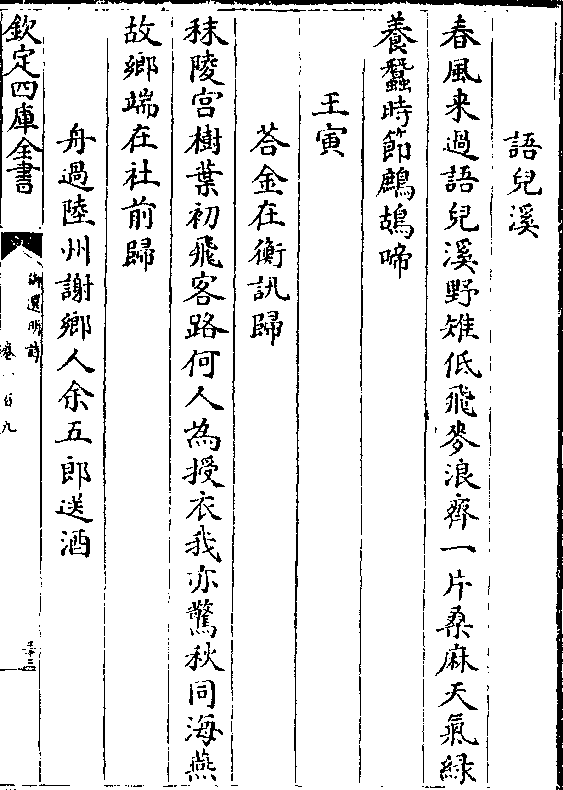 語兒溪
春風来過語兒溪野雉低飛麥浪齊一片桑麻天氣緑
養蠶時節鷓鴣啼
王寅
荅金在衡訊歸
秣陵宮樹葉初飛客路何人為授衣我亦驚秋同海燕
故鄉端在社前歸
舟過陸州謝鄉人余五郎送酒
欽定四庫全書
御選明詩
卷一百九